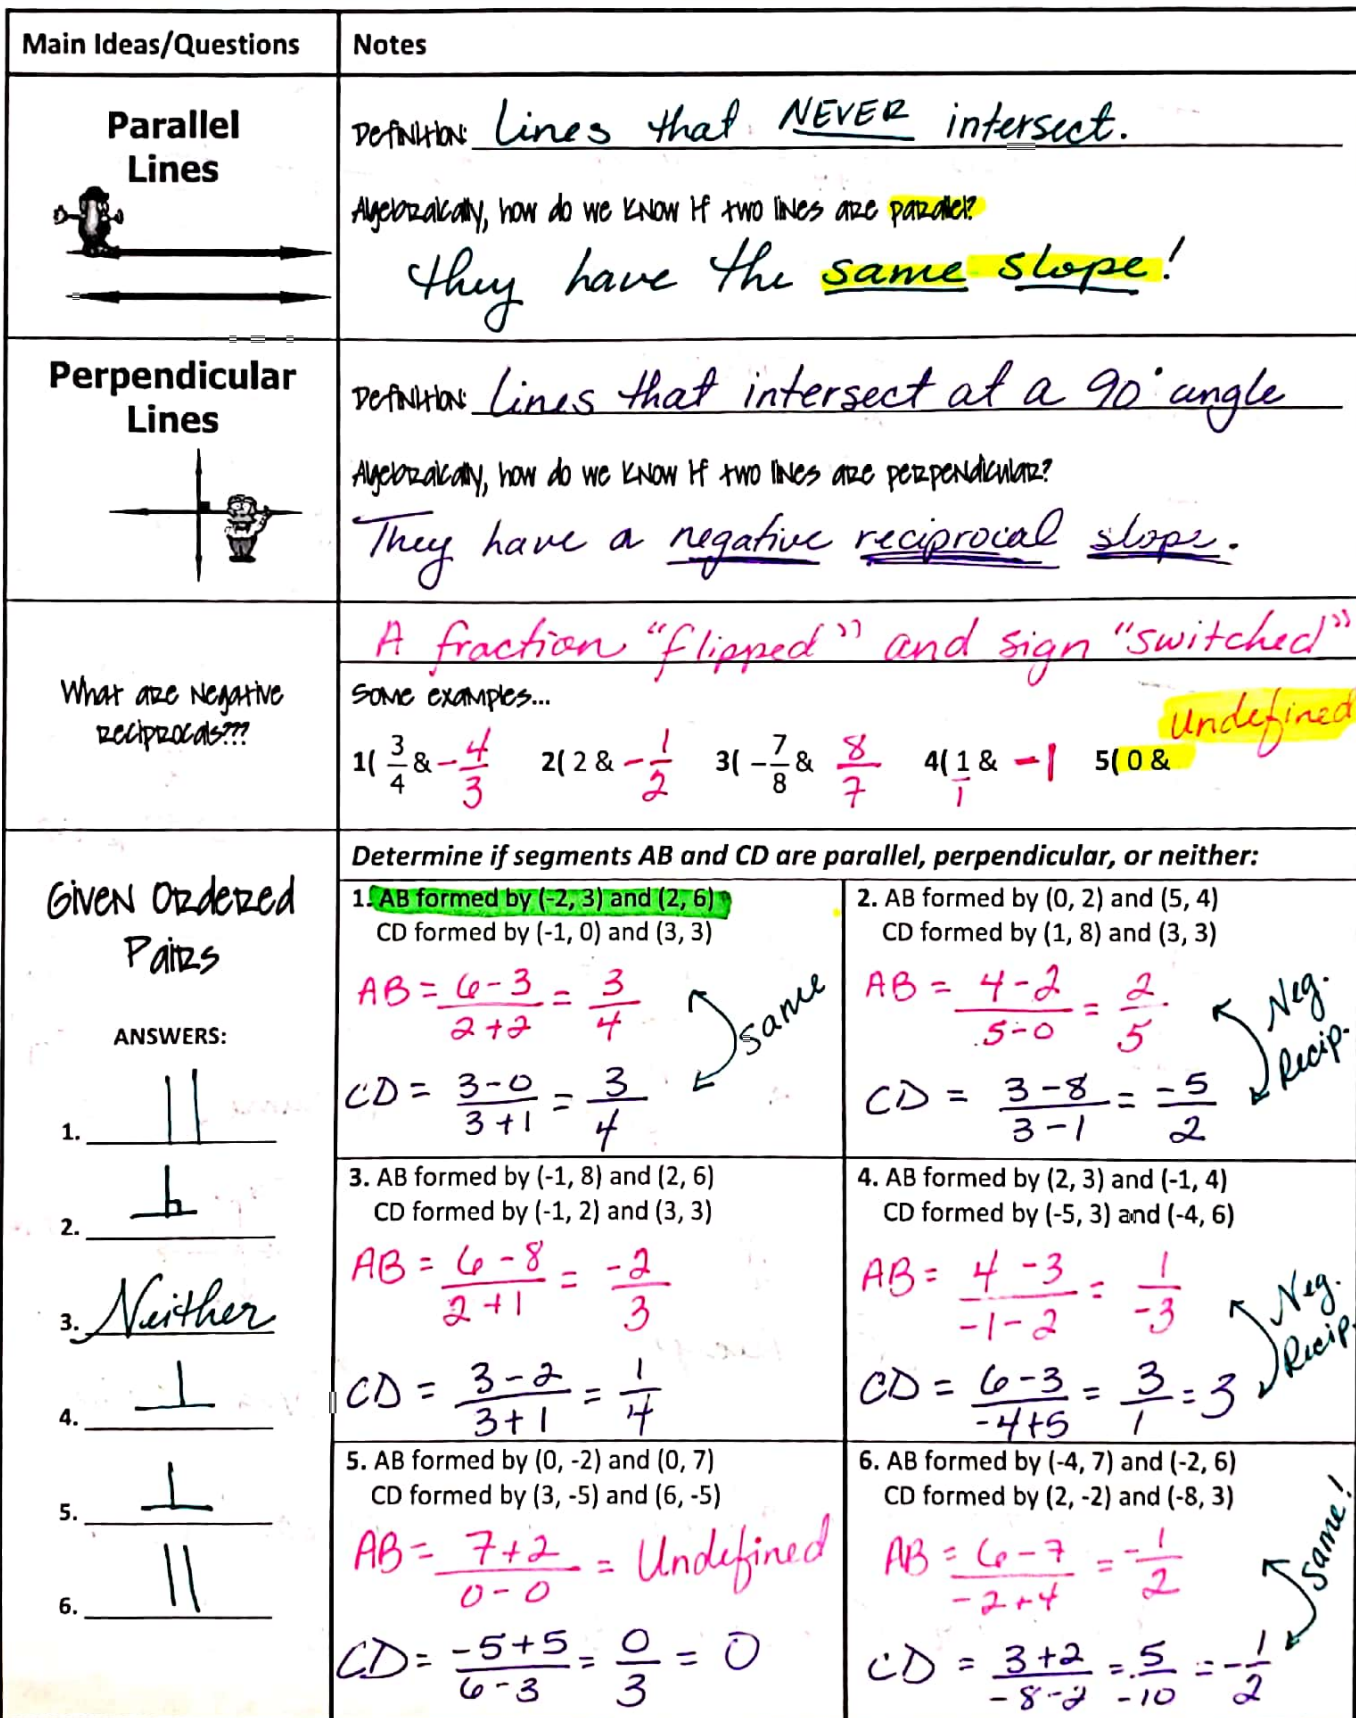 Main Ideas/Questions
Notes
Parallel
Lines
Definition: Lines that NEVER intersect.
Algebraically, how do we know if two lines are parallel?
They have the same slope!
Perpendicular
Lines
Definition: Lines that intersect at a 90° angle
Algebraically, how do we know if two lines are perpendicular?
They have a negative reciprocal slope.
What are Negative
reciprocals???
A fraction "flipped" and sign "switched"
Some examples...
1( 3/4 & -4/3 2( 2 & -1/2 3( -7/8 & 8/7 4( 1/1 & -1 5( 0 & Undefined
Given Ordered
Pairs
ANSWERS:
1. ||
2. ⊥
3. Neither
4. ⊥
5. ⊥
6. ||
Determine if segments AB and CD are parallel, perpendicular, or neither:
1. AB formed by (-2, 3) and (2, 6)
CD formed by (-1, 0) and (3, 3)
AB = 6-3/2+2 = 3/4
Same
CD = 3-0/3+1 = 3/4
2. AB formed by (0, 2) and (5, 4)
CD formed by (1, 8) and (3, 3)
AB = 4-2/5-0 = 2/5
Neg.
Recip.
CD = 3-8/3-1 = -5/2
3. AB formed by (-1, 8) and (2, 6)
CD formed by (-1, 2) and (3, 3)
AB = 6-8/2+1 = -2/3
CD = 3-2/3+1 = 1/4
4. AB formed by (2, 3) and (-1, 4)
CD formed by (-5, 3) and (-4, 6)
AB = 4-3/-1-2 = 1/-3
Neg.
Recip.
CD = 6-3/-4+5 = 3/1 = 3
5. AB formed by (0, -2) and (0, 7)
CD formed by (3, -5) and (6, -5)
AB = 7+2/0-0 = Undefined
CD = -5+5/6-3 = 0/3 = 0
6. AB formed by (-4, 7) and (-2, 6)
CD formed by (2, -2) and (-8, 3)
AB = 6-7/-2+4 = -1/2
Same!
CD = 3+2/-8-2 = 5/-10 = -1/2